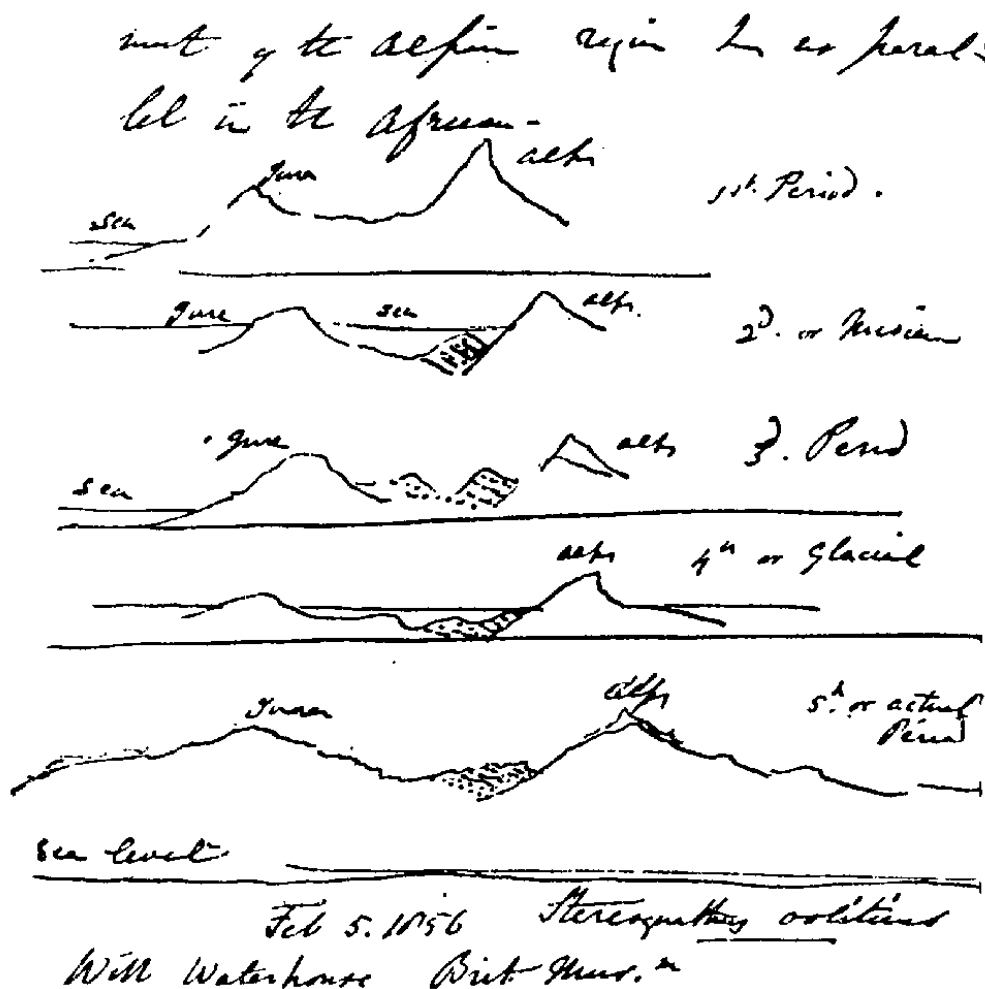 ment of the Alpine region has no paral-
lel in the African-
Jura Alps 1st. Period.
Sea
Jura sea Alps. 2d. or
Jura Alps 3d. Period
Sea
Alps 4th or Glacial
Jura Alps 5th. or actual
Period
Sea level
Feb 5. 1856 Stereognathus ooliticus
Will Waterhouse Brit. Mus.m